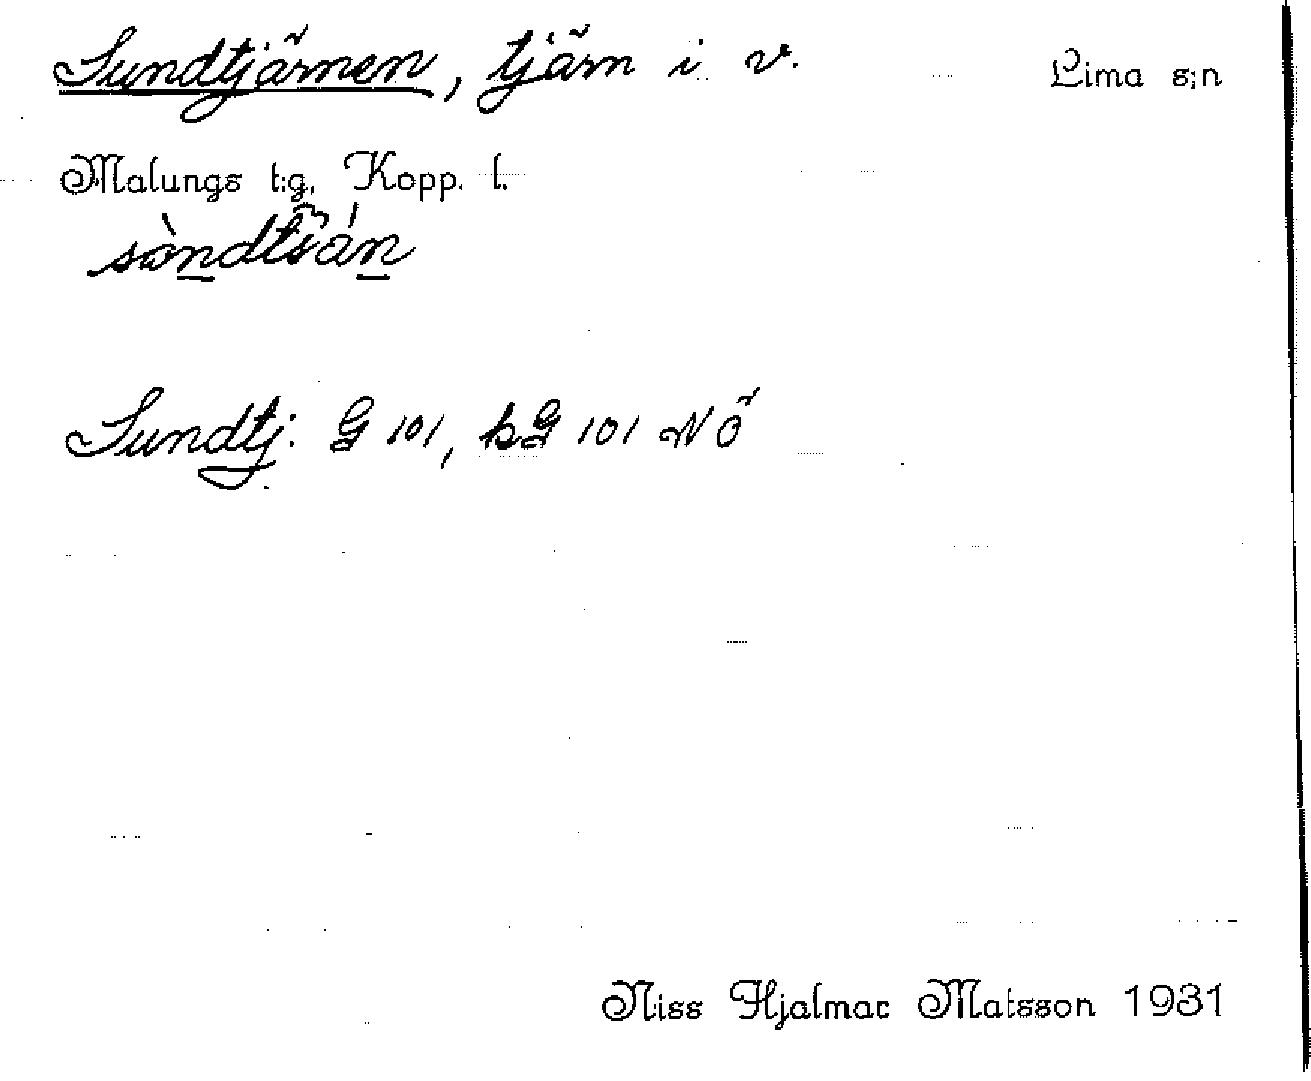 Sundtjärnen, tjärn i v. Lima s:n
Malungs t:g, Kopp. l.
sòndtšán
Sundtj: G 101, kG 101 NÖ
Niss Hjalmar Matsson 1931